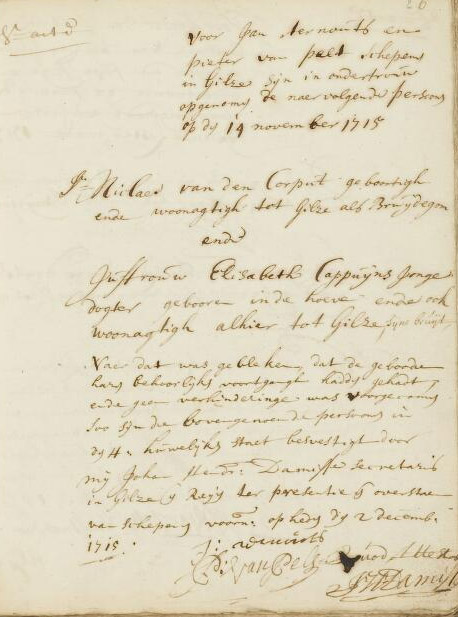 20
voor Jan Aernouts en
pieter van pelt schepens
in Gilze sijn in ondertrouw
opgenomen de naervolgende persoonen
op dij 14 november 1715
Sr. Niclaes van den Corput geboortigh
ende woonagtigh tot Gilze als Bruijdegom
ende
Juffrouw Elisabeth Cappuijns Jonge
dogter gebooren inde hoeve ende ook
woonagtigh alhier tot Gilze sijne bruijt
Naer dat was gebleken dat de geboode
hare behoorlijke voortgangh hadde gehadt
ende geen verhinderinge was voorgecomen
soo sijn de bovengenoemde persoons in
houwelijks staet bevestigt door
mij Johan Damisse secretaris
in Gilze Reije ter presentie overstaen
van schepens voorn: op heden dij 2 decemb:
1715:
J: aernouts
P: van Pelt quod Attestor
Damisse